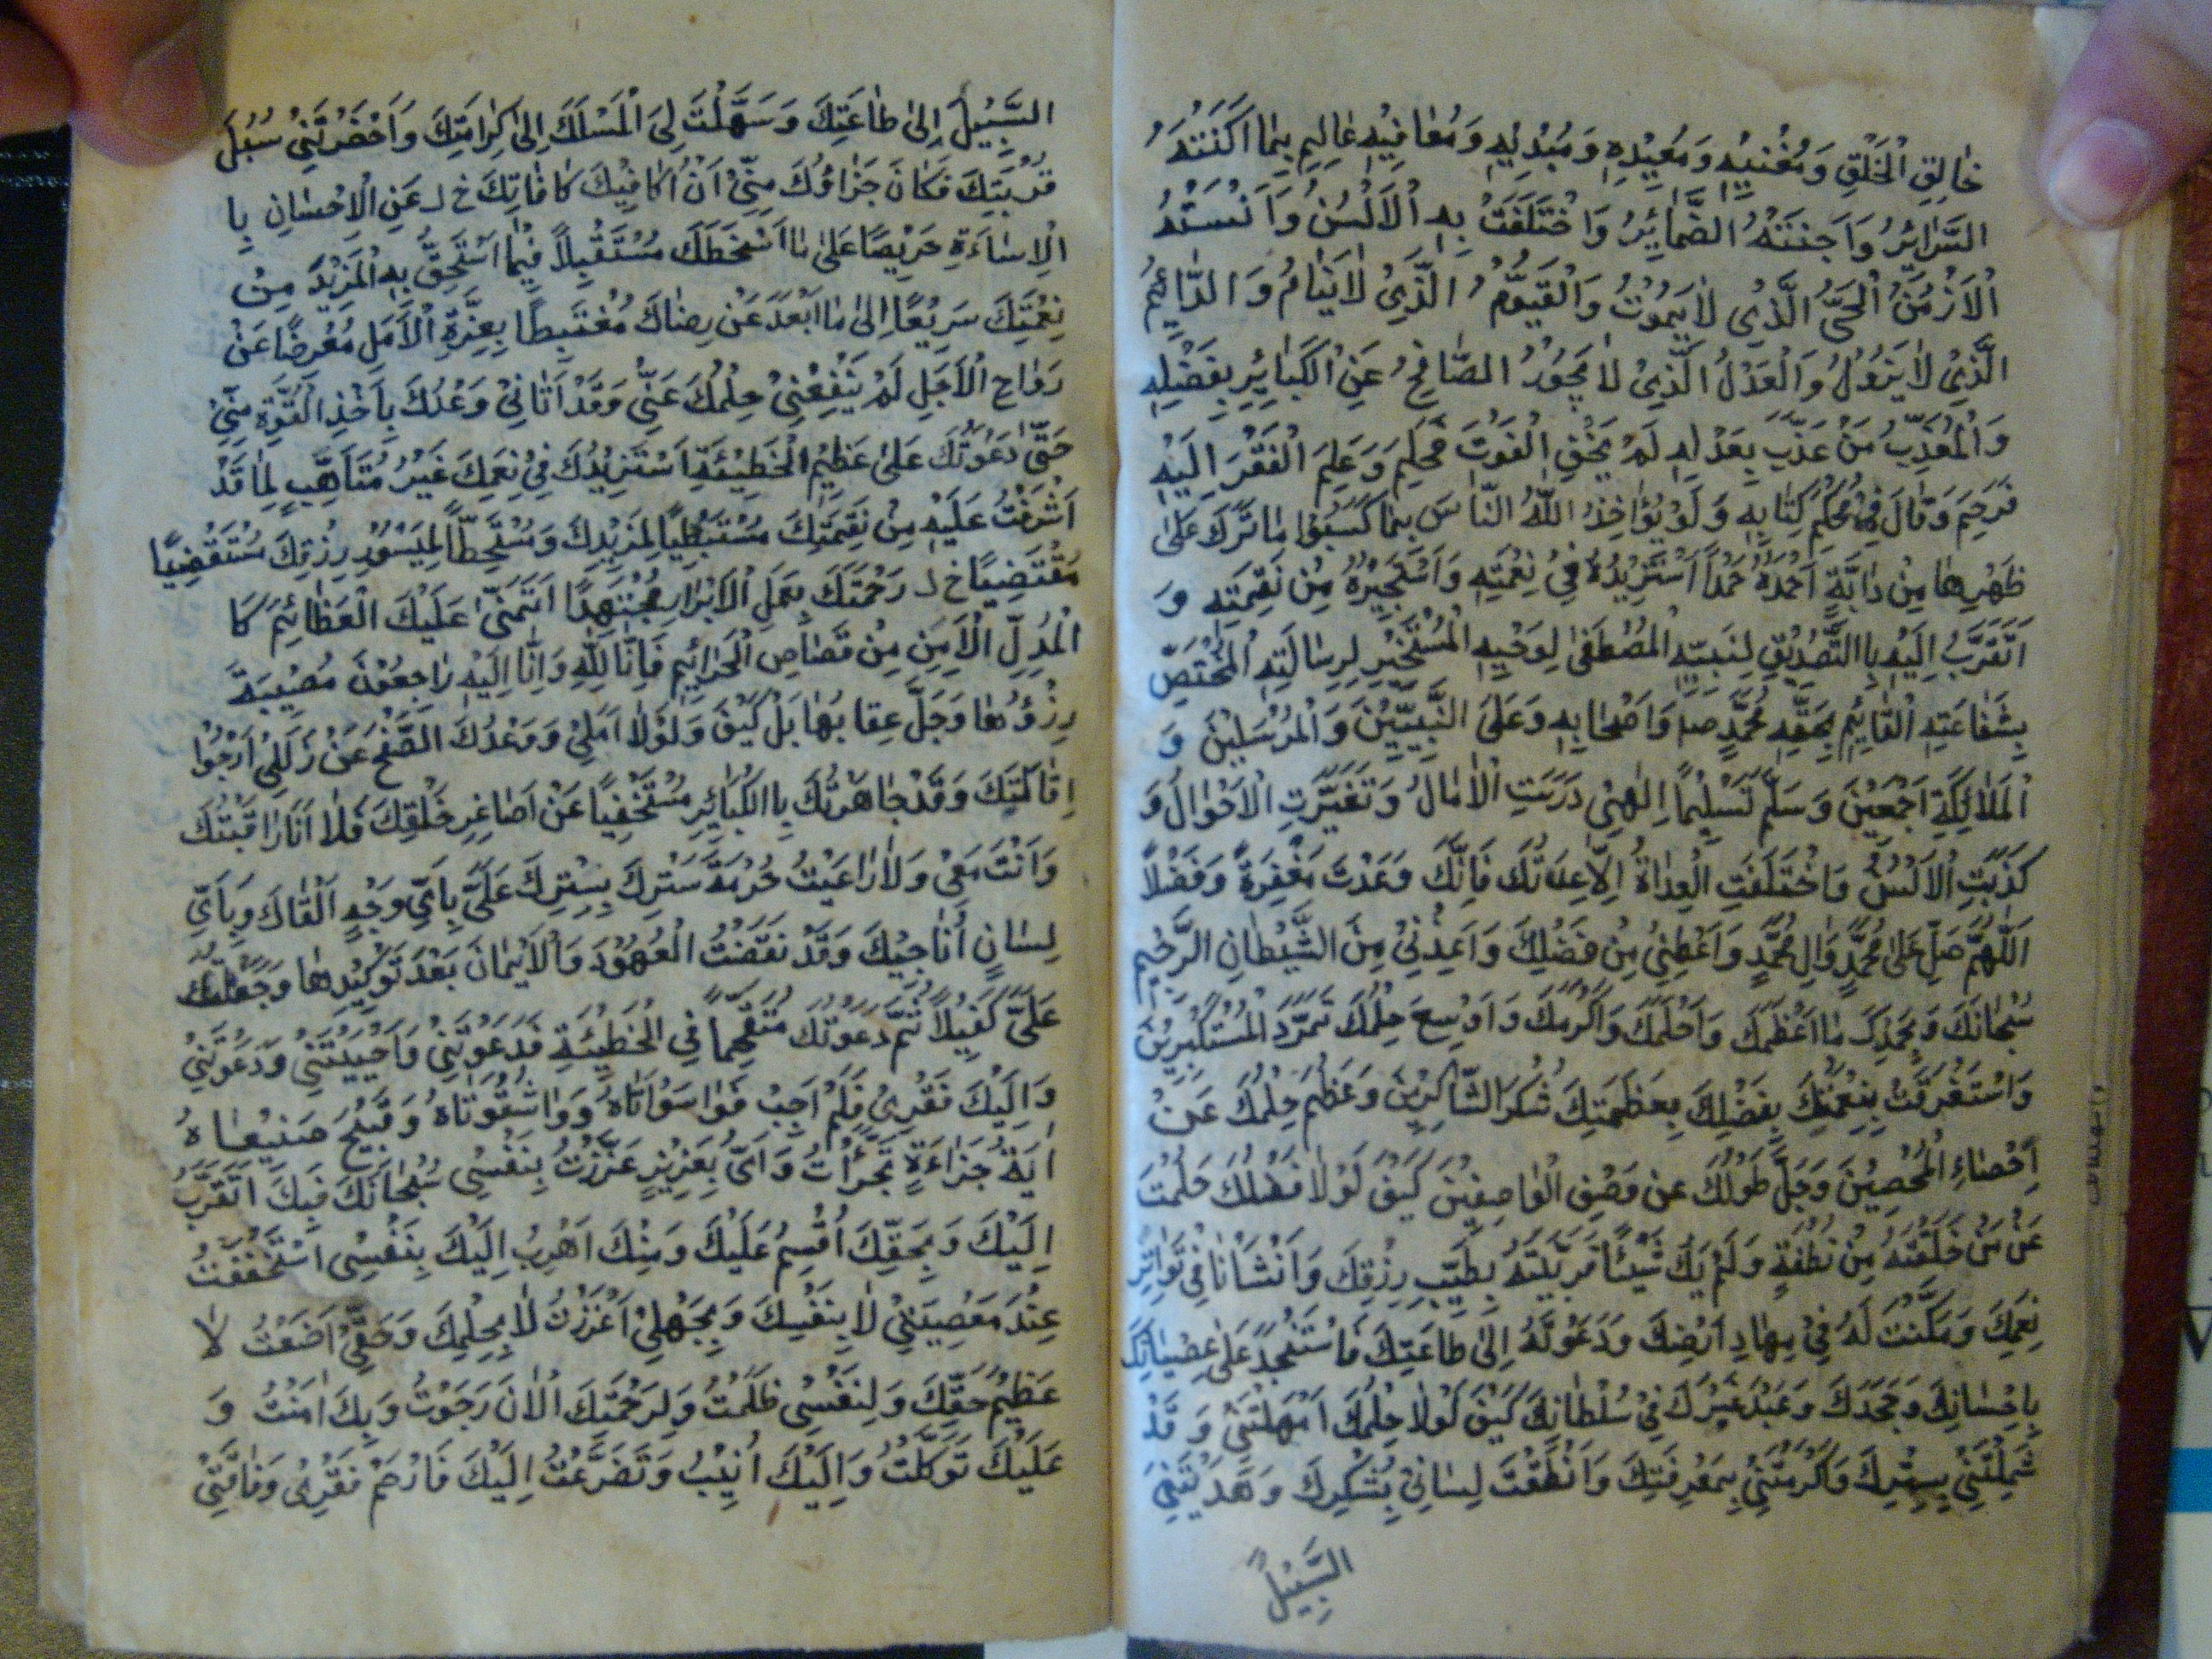 خٰالِقِ الْخَلْقِ وَمُغْنيْهِ وَمُعيْدِهِ وَمُبْديْهِ وَمُعٰافيْهِ عٰالِمِ بِمٰا اَكَنَّتْهُ
السَّرٰائِرُ وَاَجَنَتْهُ الضَّمٰايِرُ وَاخْتَلَفَتْ بِهِ الْاَلْسُنُ وَاَنْسَتْهُ
الْاَزْمُنُ الْحَيُّ الَّذيْ لٰا يَمُوْتُ وَالْقَيُّوْمُ الَّذيْ لٰا يَنٰامُ وَالدّٰائِمُ
الَّذيْ لٰا يَزُوْلُ وَالْعَدْلُ الَّذيْ لٰا يَجُوْرُ الصّٰافِحُ عَنِ الْكَبٰايِرِ بِفَضْلِهِ
وَالْمُعَذِّبُ مَنْ عَذَّبَ بِعَدْلِهِ لَمْ يَخَفِ الْفَوْتَ فَحَلِمَ وَعَلِمَ الْفَقْرَ اِلَيْهِ
فَرَحِمَ وَقٰالَ فيْ مُحْكَمِ كِتٰابِهِ وَلَوْ يُؤٰاخِذُ اللّٰهُ النّٰاسَ بِمٰا كَسَبُوْا مٰا تَرَكَ عَلىٰ
ظَهْرِهٰا مِنْ دٰابَّةٍ اَحْمَدُهُ حَمْدًا اَسْتَزيْدُهُ فيْ نِعْمَتِهِ وَاَسْتَجيْرُهُ مِنْ نَقِمَتِهِ وَ
اَتَقَرَّبُ اِلَيْهِ بِالتَّصْديْقِ لِنَبِيِّهِ الْمُصْطَفىٰ لِوَحْيِهِ الْمُتَخَيَّرِ لِرِسٰالَتِهِ الْمُخْتَصِّ
بِشَفٰاعَتِهِ الْقٰائِمِ بِحَقِّهِ مُحَمَّدٍ ص وَاَصْحٰابِهِ وَعَلَى النَّبِيّيْنَ وَالْمُرْسَليْنَ وَ
الْمَلٰائِكَةِ اَجْمَعيْنَ وَسَلَّمَ تَسْليْمًا اِلٰهيْ دَرَسَتِ الْاٰمٰالُ وَتَغَيَّرَتِ الْاَحْوٰالُ وَ
كَذَبَتِ الْاَلْسُنُ وَاخْتَلَفَتِ الْعِدٰاةُ اِلّٰا عِدَتُكَ فَاِنَّكَ وَعَدْتَ مَغْفِرَةً وَفَضْلًا
اَللّٰهُمَّ صَلِّ عَلىٰ مُحَمَّدٍ وَاٰلِ مُحَمَّدٍ وَاَعْطِنيْ مِنْ فَضْلِكَ وَاَعِذْنيْ مِنَ الشَّيْطٰانِ الرَّجيْمِ
سُبْحٰانَكَ وَبِحَمْدِكَ مٰا اَعْظَمَكَ وَاَحْلَمَكَ وَاَكْرَمَكَ وَاَوْسَعَ حِلْمُكَ تَمَرُّدَ الْمُسْتَكْبِريْنَ
وَاسْتَغْرَقَتْ بِنِعْمَتِكَ بِفَضْلِكَ بِعَظَمَتِكَ شُكْرَ الشّٰاكِريْنَ وَعَظُمَ حِلْمُكَ عَنْ
اِحْصٰاءِ الْمُحْصيْنَ وَجَلَّ طَوْلُكَ عَنْ وَصْفِ الْوٰاصِفيْنَ كَيْفَ لَوْلٰا فَضْلُكَ حَلُمْتَ
عَنْ مَنْ خَلَقْتَهُ مِنْ نُطْفَةٍ وَلَمْ يَكُ شَيْئًا فَرَبَّيْتَهُ بِطيّْبِ رِزْقِكَ وَاَنْشَأْتَنا فيْ تَوٰاتُرِ
نِعَمِكَ وَمَكَّنْتَ لَهُ فيْ مِهٰادِ اَرْضِكَ وَدَعَوْتَهُ اِلىٰ طٰاعَتِكَ فَاسْتَنْجَدَ عَلىٰ عِصْيٰانِكَ
بِاِحْسٰانِكَ وَجَحَدَكَ وَعَبَدَ غَيْرَكَ فيْ سُلْطٰانِكَ كَيْفَ لَوْلٰا حِلْمُكَ اَمْهَلْتَنيْ وَقَدْ
شَمِلْتَنيْ بِسِتْرِكَ وَاَكْرَمْتَنيْ بِمَعْرِفَتِكَ وَاَنْطَقْتَ لِسٰانيْ بِشُكْرِكَ وَهَدَيْتَنيْ
السَّبيْلَ
السَّبيْلَ اِلىٰ طٰاعَتِكَ وَسَهَّلْتَ لِيَ الْمَسْلَكَ اِلىٰ كَرٰامَتِكَ وَاَحْضَرْتَنيْ سُبُلَ
قُرْبَتِكَ فَكٰانَ جَزٰاؤُكَ مِنّيْ اَنْ اُكٰافِيْكَ كٰافٰاتِكَ خ ل عَنِ الْاِحْسٰانِ بِا
الْاِسٰاءَةِ حَريْصًا عَلىٰ مٰا اَسْخَطَكَ مُسْتَقْبِلًا فيْمٰا اَسْتَحِقُّ بِهِ الْمَزيْدَ مِنْ
نِعْمَتِكَ سَريْعًا اِلىٰ مٰا اَبْعَدَ عَنْ رِضٰاكَ مُغْتَبِطًا بِعِزَّةِ الْاَمَلِ مُعْرِضًا عَنْ
رَوٰاحِ الْاَجَلِ لَمْ يَنْفَعْنيْ حِلْمُكَ عَنّيْ وَقَدْ اَتٰانيْ وَعْدُكَ بِاَخْذِ الْقُوَّةِ مِنّيْ
حَتّىٰ دَعَوْتُكَ عَلىٰ عَظيْمِ الْخَطيْئَةِ اَسْتَزيْدُكَ فيْ نِعَمِكَ غَيْرَ مُتَاَهِّبٍ لِمٰا قَدْ
اَشْرَفْتُ عَلَيْهِ مِنْ نَقِمَتِكَ مُسْتَبْطِيًا لِمَزيْدِكَ وَمُتَسَخِّطًا لِمَيْسُوْرِ رِزْقِكَ مُسْتَقْضِيًا
مُقْتَضِيًا خ ل رَحْمَتَكَ بِعَمَلِ الْاَبْرٰارِ مُجْتَهِدًا اَتَمَنّىٰ عَلَيْكَ الْعَظٰائِمَ كَا
لْمُدِلِّ الْاٰمِنِ مِنْ قَصٰاصِ الْجَرٰائِمِ فَاِنّٰا لِلّٰهِ وَاِنّٰا اِلَيْهِ رٰاجِعُوْنَ مُصيْبَةً
رِزْؤُهٰا وَجَلَّ عِقٰابُهٰا بَلْ كَيْفَ وَلَوْلٰا اَمَليْ وَوَعْدُكَ الصَّفْحَ عَنْ زَلَليْ اَرْجُوْا
اِقٰالَتَكَ وَقَدْ جٰاهَرْتُكَ بِالْكَبٰايِرِ مُسْتَخْفِيًا عَنْ اَصٰاغِرِ خَلْقِكَ فَلٰا اَنَا رٰاقَبْتُكَ
وَاَنْتَ مَعيْ وَلٰا رٰاعَيْتُ حُرْمَةَ سَتْرِكَ بِسِتْرِكَ عَلَيَّ بِاَيِّ وَجْهٍ اَلْقٰاكَ وَبِاَيِّ
لِسٰانٍ اُنٰاجيْكَ وَقَدْ نَقَضْتُ الْعُهُوْدَ وَالْاَيْمٰانَ بَعْدَ تَوْكيْدِهٰا وَجَعَلْتُكَ
عَلَيَّ كَفيْلًا ثُمَّ دَعَوْتُكَ مُتَقَحِّمًا فِي الْخَطيْئَةِ فَدَعَوْتَنيْ وَاَحْيَيْتَنيْ وَدَعَوْتَنيْ
وَاِلَيْكَ فَقْريْ فَلَمْ اُجِبْ فَوٰا سَوْاَتٰاهُ وَوٰا شِقْوَتٰاهُ وَقَبيْحَ صَنيْعٰاهُ
اَيَّةَ جَرٰاءَةٍ تَجَرَّأْتُ وَاَيَّ بِعَزيْزٍ عَزَّزْتُ بِنَفْسيْ سُبْحٰانَكَ فَبِكَ اَتَقَرَّبُ
اِلَيْكَ وَبِحَقِّكَ اُقْسِمُ عَلَيْكَ وَمِنْكَ اَهْرَبُ اِلَيْكَ بِنَفْسيْ اسْتَخْفَفْتُ
عِنْدَ مَعْصِيَتيْ لٰا بِنَفْسِكَ وَبِجَهْليْ اغْتَرَرْتُ لٰا بِحِلْمِكَ وَحَقّيْ اَضَعْتُ لٰا
عَظيْمَ حَقِّكَ وَلِنَفْسيْ ظَلَمْتُ وَلِرَحْمَتِكَ الْاٰنَ رَجَوْتُ وَبِكَ اٰمَنْتُ وَ
عَلَيْكَ تَوَكَّلْتُ وَاِلَيْكَ اُنيْبُ وَتَضَرَّعْتُ اِلَيْكَ فَارْحَمْ فَقْريْ وَفٰاقَتيْ